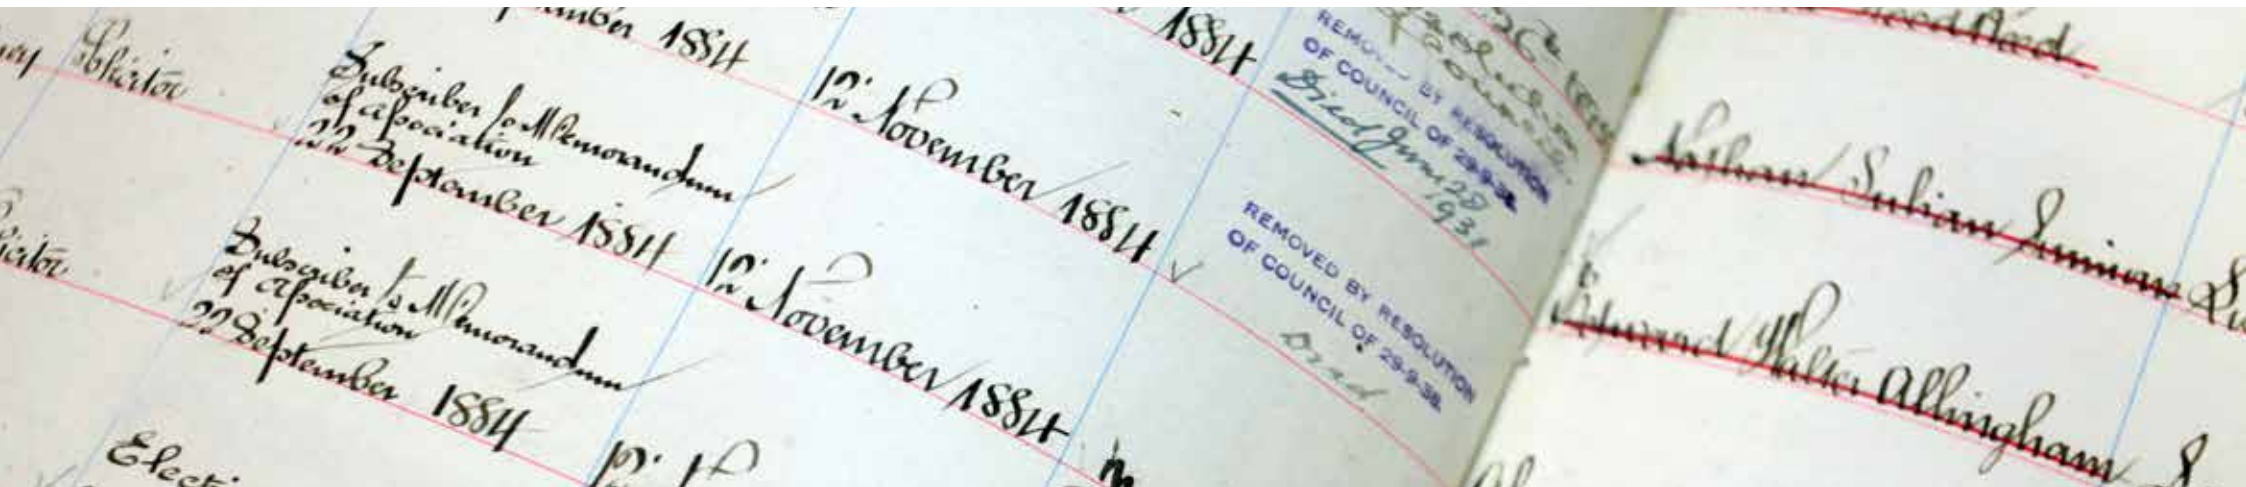 1884
1884
Solicitor
Subscriber to Memorandum
of Association
22 September 1884
12 November 1884
REMOVED BY RESOLUTION
OF COUNCIL OF 29·9·38
Died June 28
1931
Subscriber to Memorandum
of Association
22 September 1884
12 November 1884
REMOVED BY RESOLUTION
OF COUNCIL OF 29·9·38.
Dead
Electi
Nathan Julian
Edward Walter Allingham